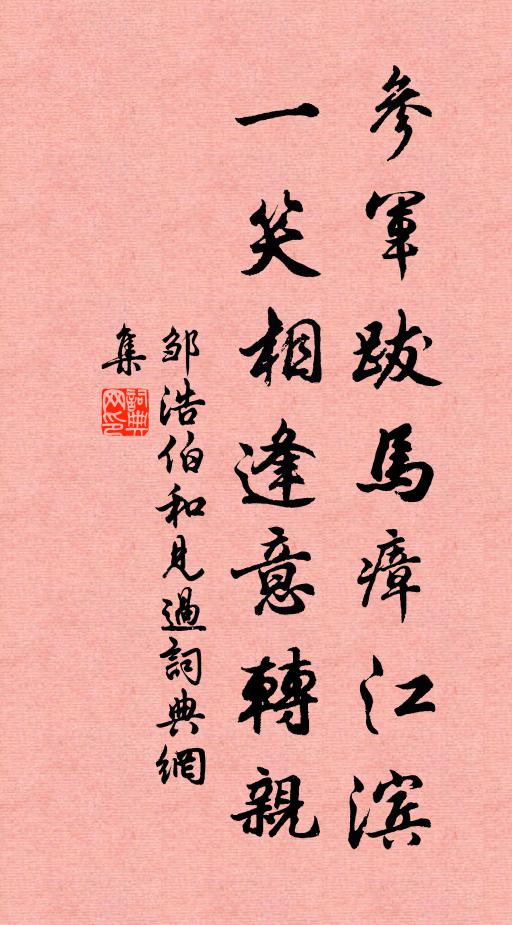 參軍跋馬瘴江滨
一笑相逢意轉親
邹浩伯和見過詞典網
集
詞典網印